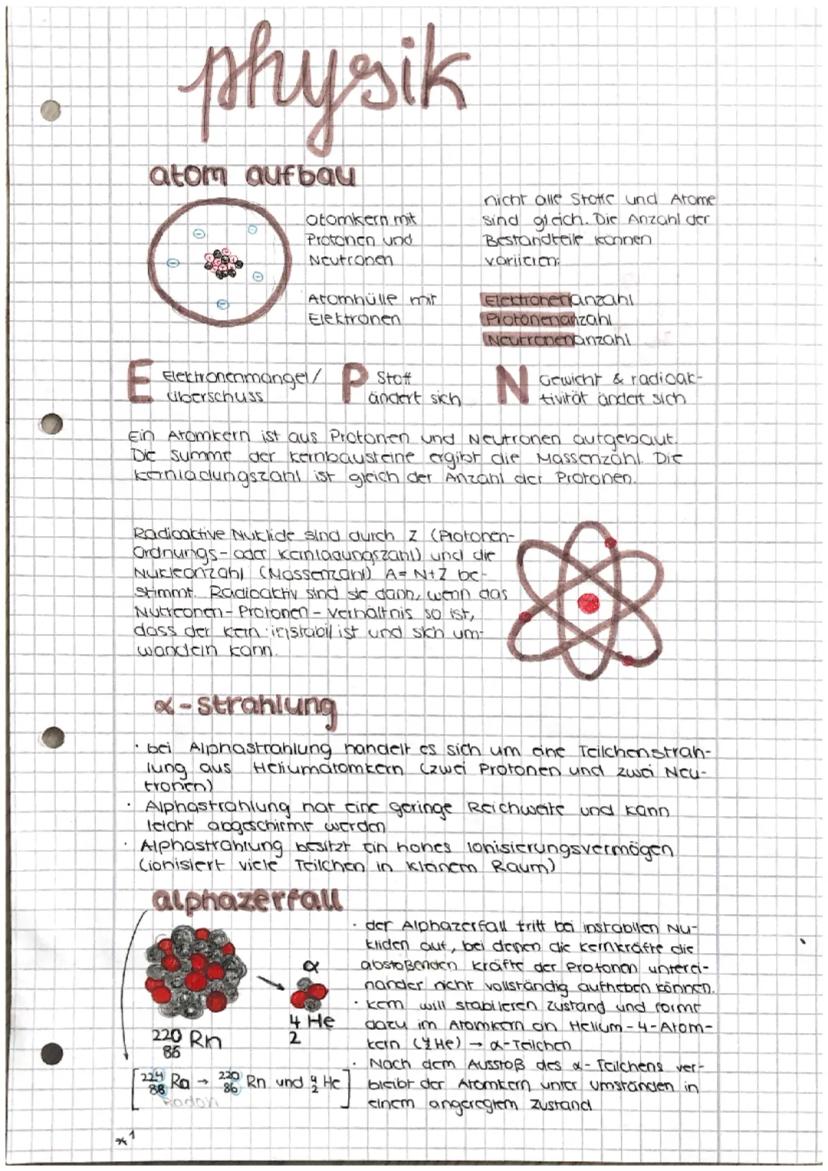 physik
atom aufbau
Atomkern mit
Protonen und
Neutronen
Atomhülle mit
Elektronen
nicht alle Stoffe und Atome
sind gleich. Die Anzahl der
Bestandteile können
variieren:
Elektronenanzahl
Protonenanzahl
Neutronenanzahl
E Elektronenmangel/
überschuss
P Stoff
ändert sich
N Gewicht & radioak-
tivität ändert sich
Ein Atomkern ist aus Protonen und Neutronen aufgebaut.
Die Summe der Kernbausteine ergibt die Massenzahl. Die
Kernladungszahl ist gleich der Anzahl der Protonen.
Radioaktive Nuklide sind durch Z (Protonen-
Ordnungs- oder Kernladungszahl) und die
Nukleonzahl (Massenzahl) A = N+Z be-
stimmt. Radioaktiv sind sie dann, wenn das
Nutreonen-Protonen-verhältnis so ist,
dass der Kern instabil ist und sich um-
wandeln kann.
α-strahlung
· bei Alphastrahlung handelt es sich um eine Teilchenstrah-
lung aus Heliumatomkern (zwei Protonen und zwei Neu-
tronen)
· Alphastrahlung hat eine geringe Reichweite und kann
leicht abgeschirmt werden
· Alphastrahlung besitzt ein hohes Ionisierungsvermögen
(ionisiert viele Teilchen in kleinem Raum)
alphazerfall
α
4 He
2
220 Rn
86
[224 Ra → 220 Rn und 4 He]
88 86 2
Radon
· der Alphazerfall tritt bei instabilen Nu-
kliden auf, bei denen die Kernkräfte die
abstoßenden Kräfte der Protonen unterei-
nander nicht vollständig aufheben können.
· Kern will stabileren zustand und formt
dazu im Atomkern ein Helium-4-Atom-
kern (4/2 He) → α-Teilchen
· Nach dem Ausstoß des α-Teilchens ver-
bleibt der Atomkern unter Umständen in
einem angeregtem Zustand
*1